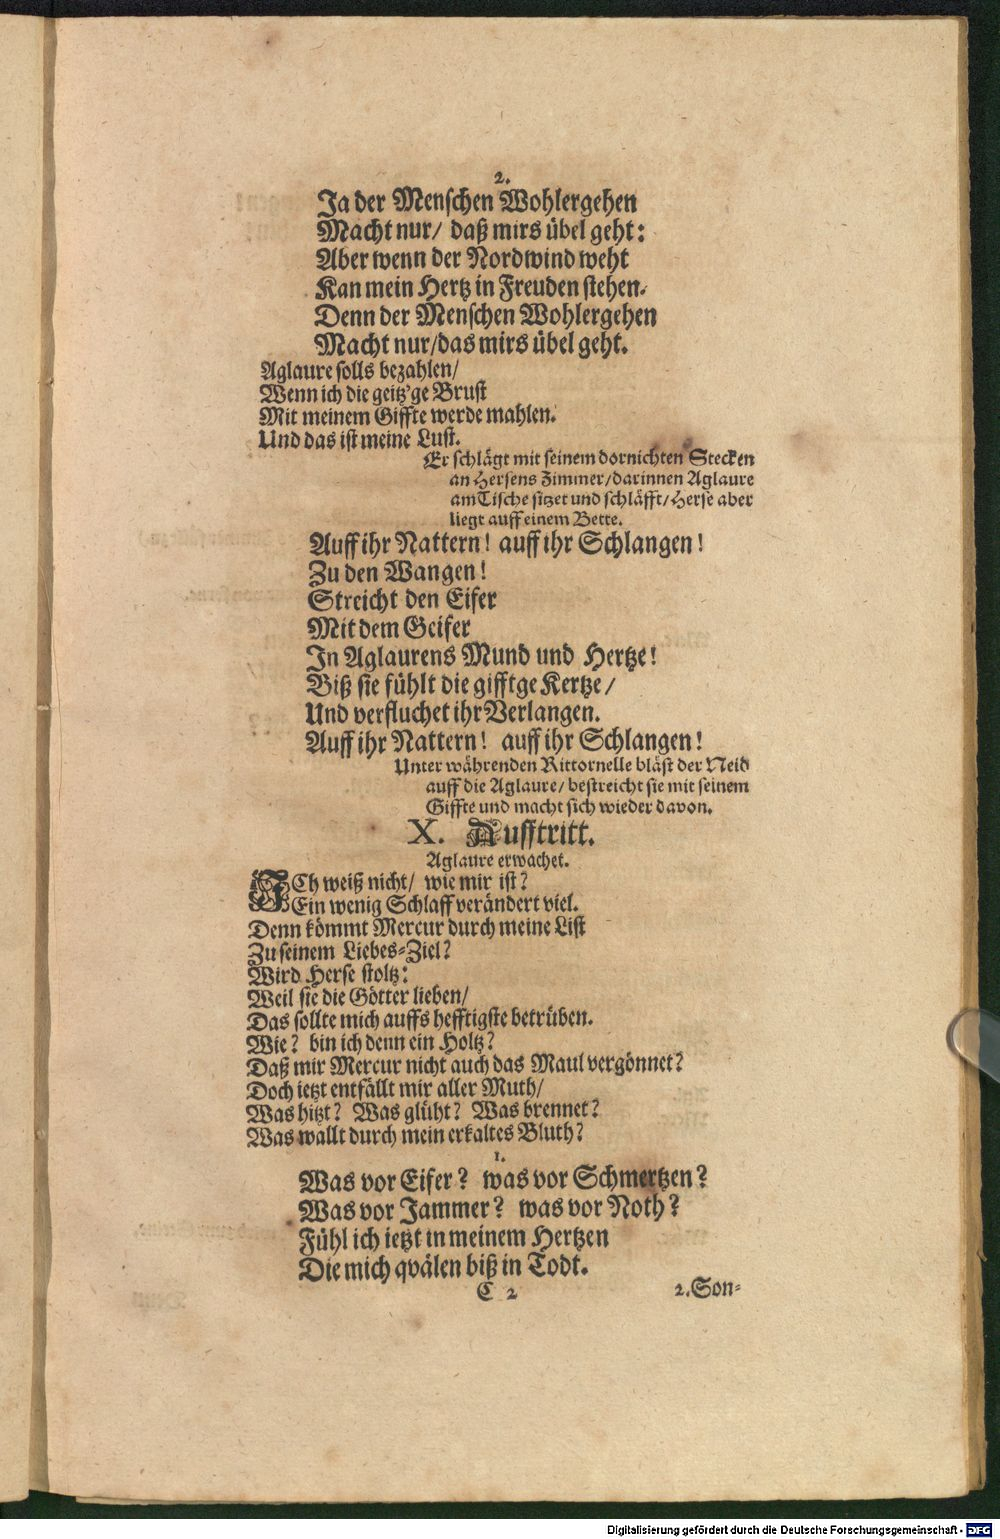 2.
Ja der Menschen Wohlergehen
Macht nur/ daß mirs übel geht:
Aber wenn der Nordwind weht
Kan mein Hertz in Freuden stehen.
Denn der Menschen Wohlergehen
Macht nur/das mirs übel geht.
Aglaure solls bezahlen/
Wenn ich die geitz'ge Brust
Mit meinem Giffte werde mahlen.
Und das ist meine Lust.
Er schlägt mit seinem dornichten Stecken
an Hersens Zimmer/darinnen Aglaure
am Tische sitzet und schläfft/Herse aber
liegt auff einem Bette.
Auff ihr Nattern! auff ihr Schlangen!
Zu den Wangen!
Streicht den Eifer
Mit dem Geifer
In Aglaurens Mund und Hertze!
Biß sie fühlt die gifftge Kertze/
Und verfluchet ihr Verlangen.
Auff ihr Nattern! auff ihr Schlangen!
Unter währenden Rittornelle bläst der Neid
auff die Aglaure/ bestreicht sie mit seinem
Giffte und macht sich wieder davon.
X. Aufftritt.
Aglaure erwachet.
ICh weiß nicht/ wie mir ist?
Ein wenig Schlaff verändert viel.
Denn kömmt Mercur durch meine List
Zu seinem Liebes-Ziel?
Wird Herse stoltz:
Weil sie die Götter lieben/
Das sollte mich auffs hefftigste betrüben.
Wie? bin ich denn ein Holtz?
Daß mir Mercur nicht auch das Maul vergönnet?
Doch ietzt entfällt mir aller Muth/
Was hitzt? Was glüht? Was brennet?
Was wallt durch mein erkaltes Bluth?
1.
Was vor Eifer? was vor Schmertzen?
Was vor Jammer? was vor Noth?
Fühl ich ietzt in meinem Hertzen
Die mich qvälen biß in Todt.
C 2 2. Son-
Digitalisierung gefördert durch die Deutsche Forschungsgemeinschaft - DFG